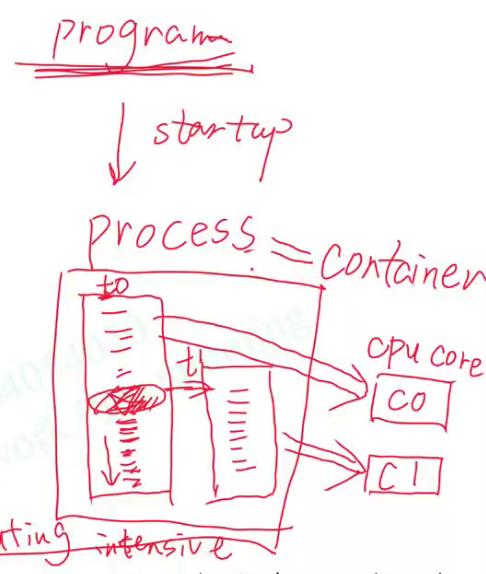 program
startup
process = container
t0
t1
cpu core
C0
C1
ating intensive